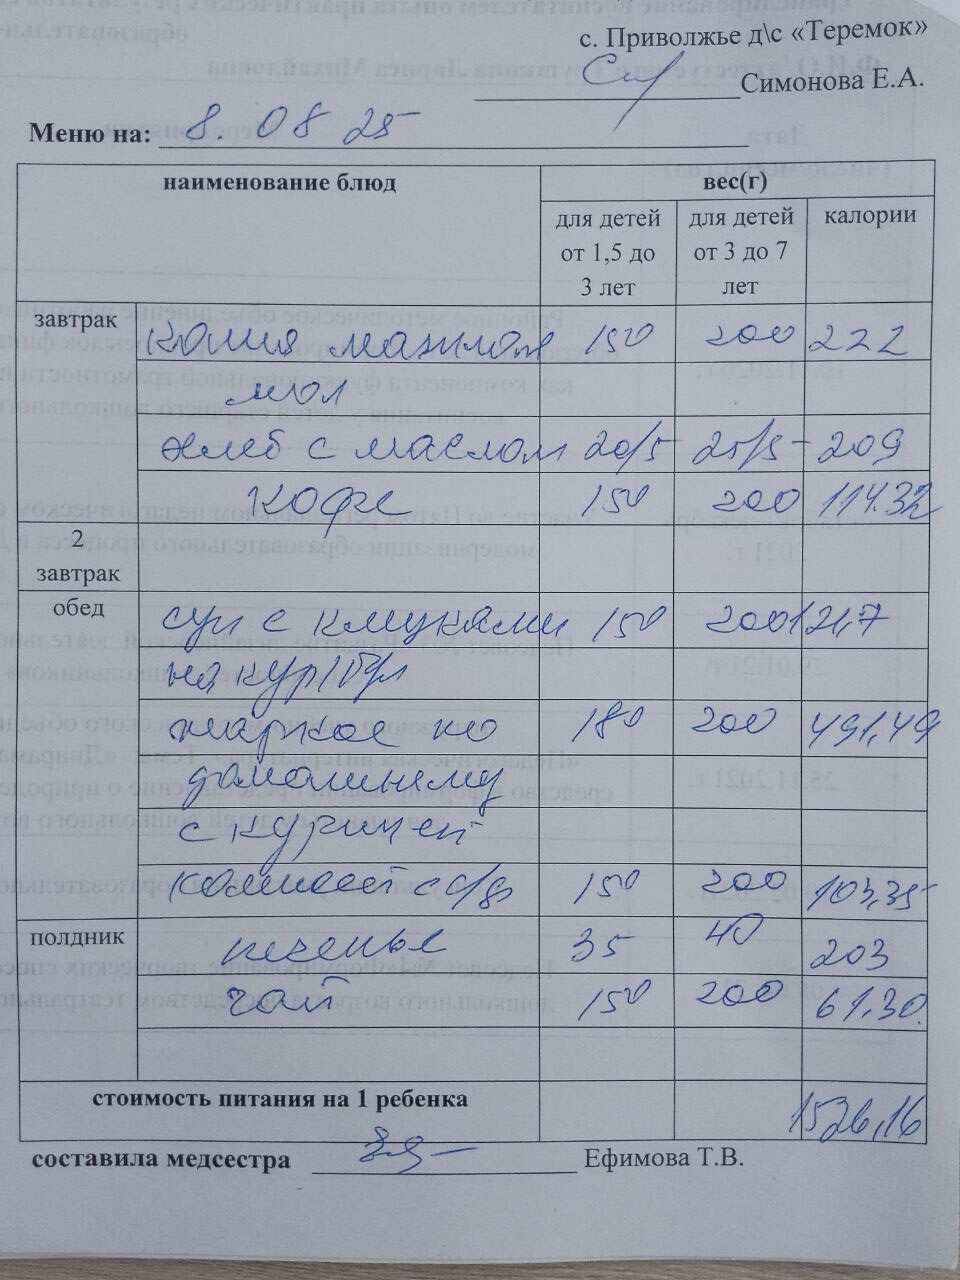 с. Приволжье д\с «Теремок»
Симонова Е.А.
Меню на: 8. 08 25
наименование блюд вес(г)
для детей от 1,5 до 3 лет для детей от 3 до 7 лет калории
завтрак Каша 150 200 222
мол
хлеб с маслом 20/5 25/5 209
кофе 150 200 114.32
2 завтрак
обед суп с клецками 150 200 121,7
на кур/бул
жаркое по 180 200 491,49
домашнему
с курицей
компот с/ф 150 200 103,35
полдник печенье 35 40 203
чай 150 200 61.30
стоимость питания на 1 ребенка 1526,16
составила медсестра Ефимова Т.В.